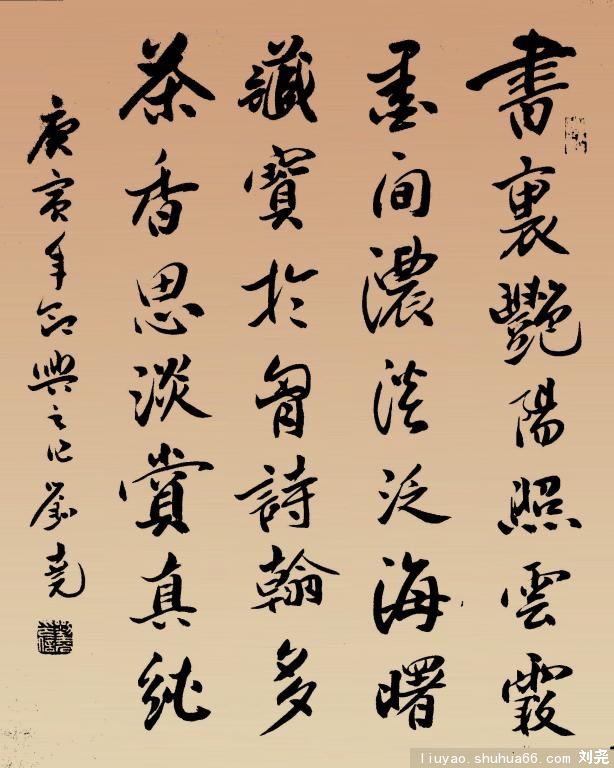 書裏艷陽照雲霞
墨间濃淡泛海曙
藏寶於胷詩翰多
茶香思淡賞真純
庚寅年即興之作劉尧
liuyao.shuhua66.com 刘尧